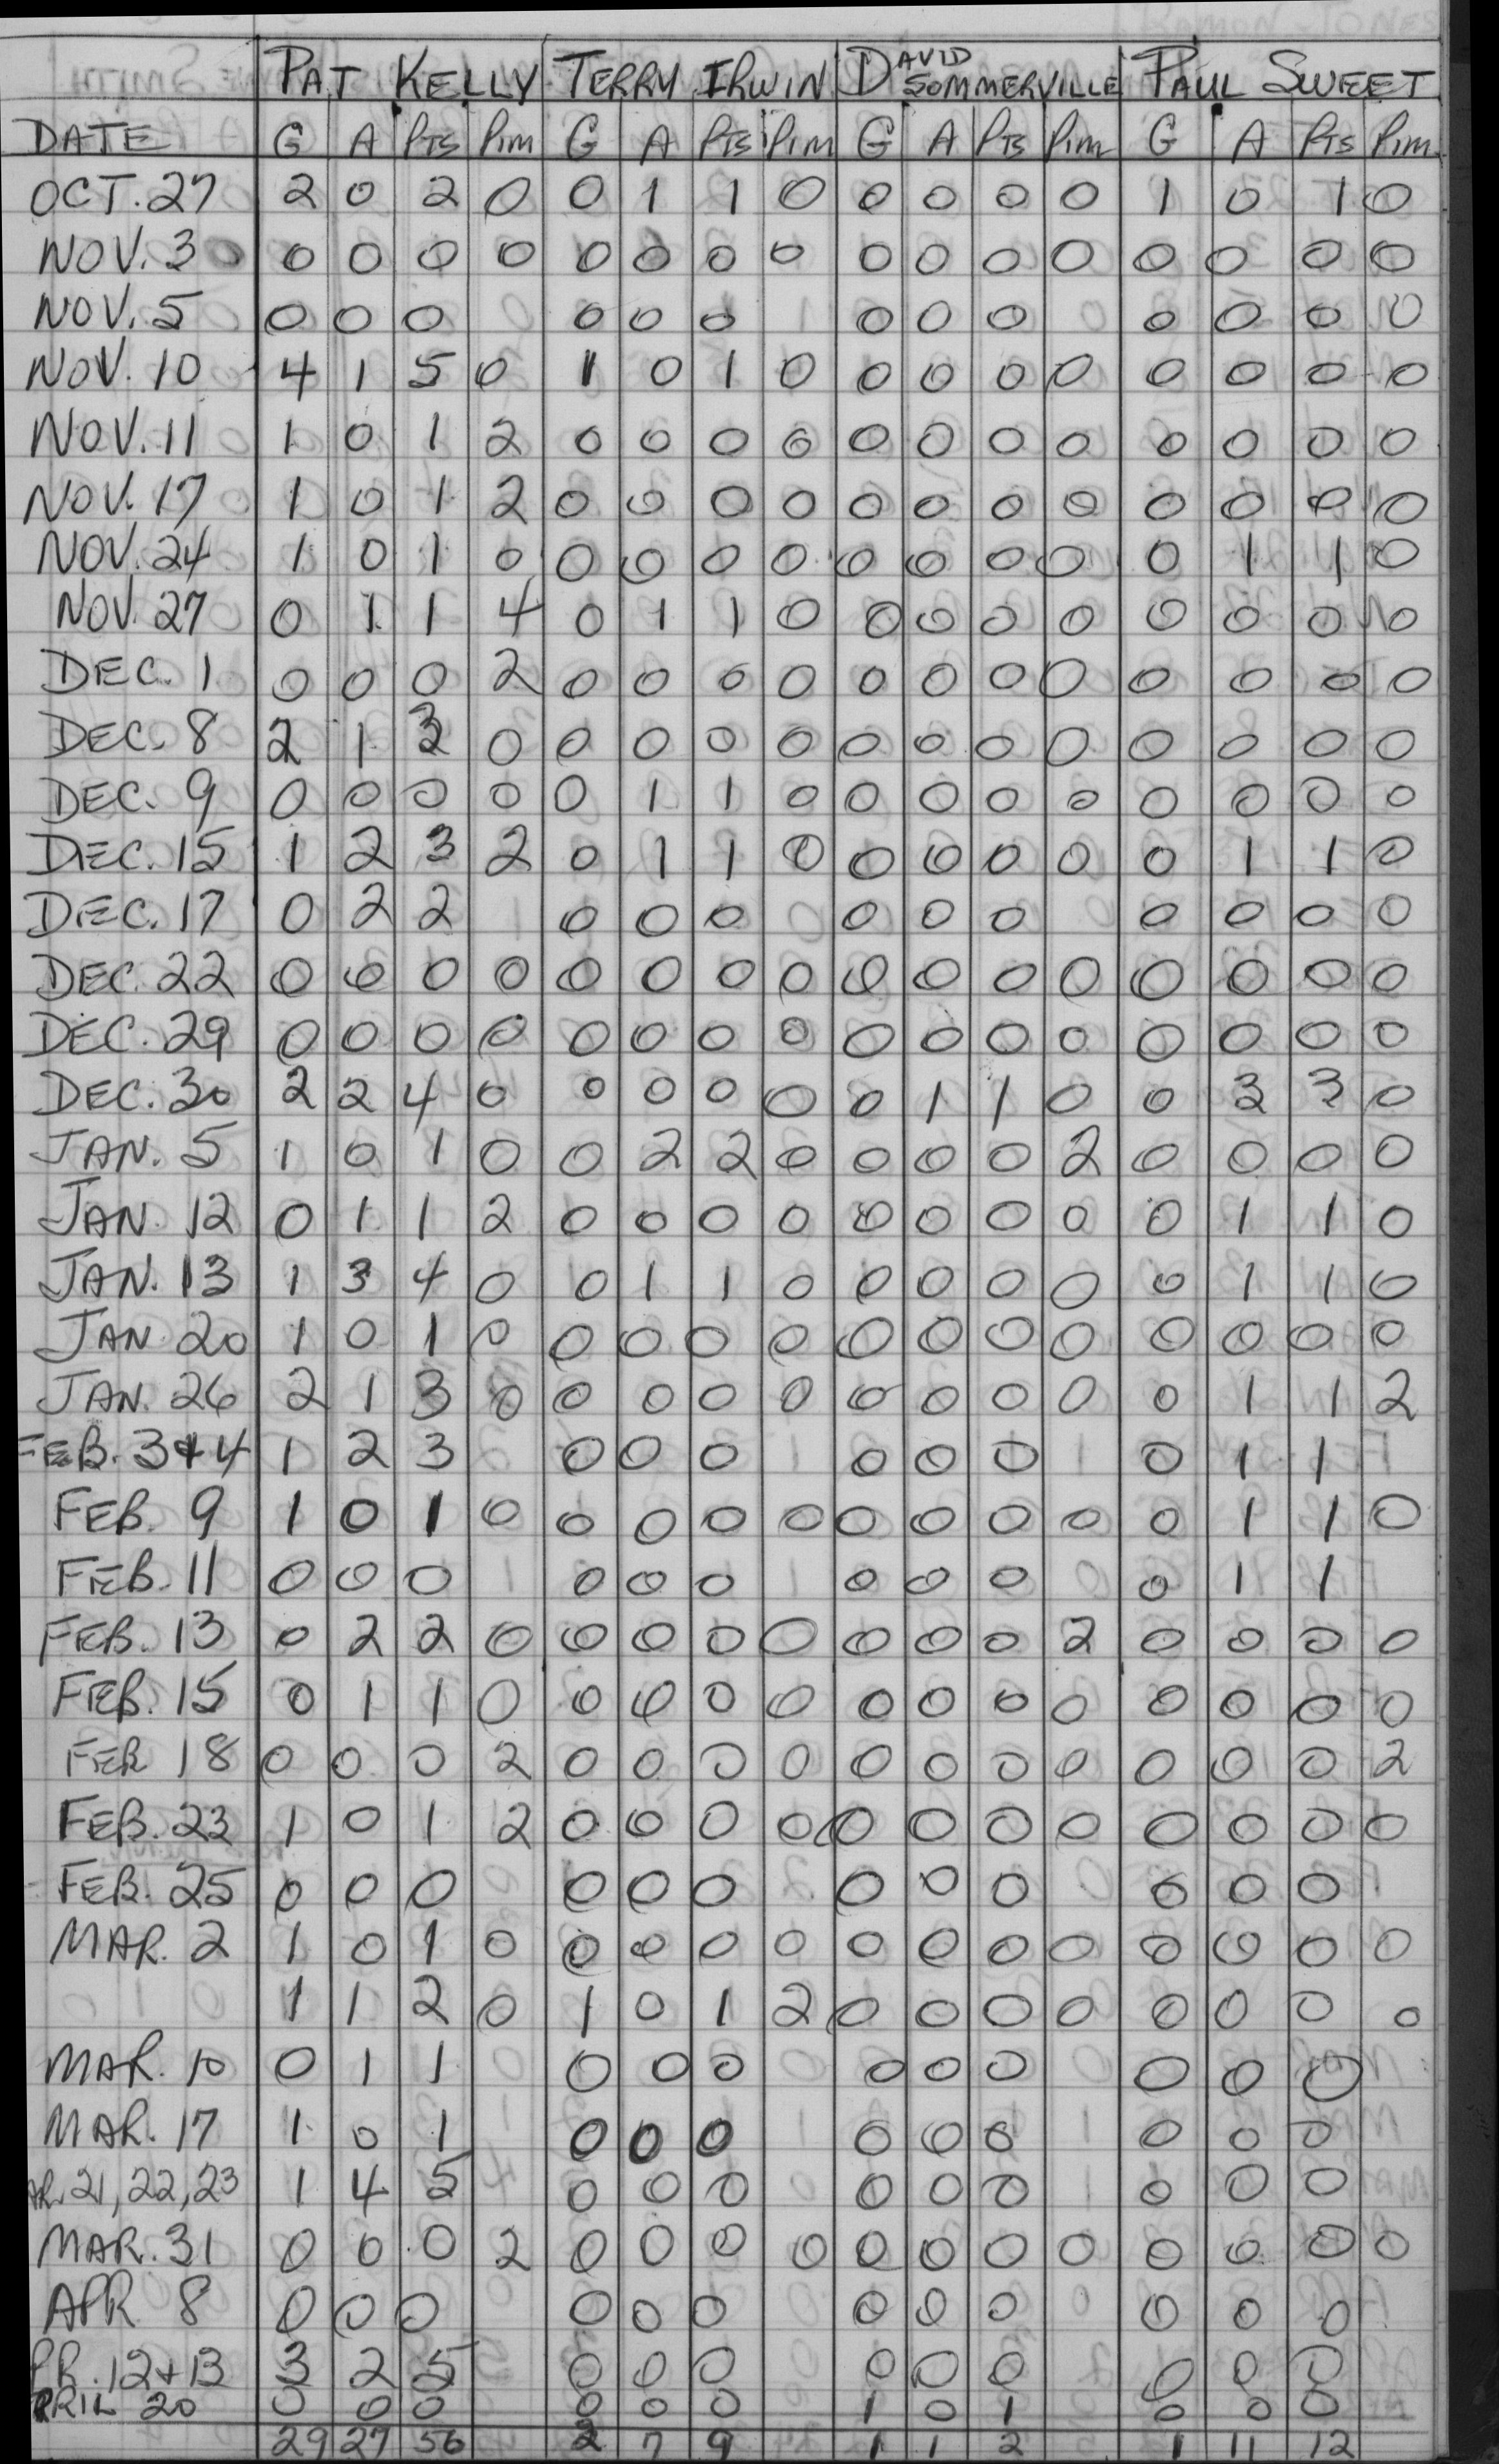 PAT KELLY TERRY IRWIN DAVID SOMMERVILLE PAUL SWEET
DATE G A Pts Pim G A Pts Pim G A Pts Pim G A Pts Pim
OCT. 27 2 0 2 0 0 1 1 0 0 0 0 0 1 0 1 0
NOV. 3 0 0 0 0 0 0 0 0 0 0 0 0 0 0 0 0
NOV. 5 0 0 0 0 0 0 0 0 0 0 0 0 0
NOV. 10 4 1 5 0 1 0 1 0 0 0 0 0 0 0 0 0
NOV. 11 1 0 1 2 0 0 0 0 0 0 0 0 0 0 0 0
NOV. 17 1 0 1 2 0 0 0 0 0 0 0 0 0 0 0 0
NOV. 24 1 0 1 0 0 0 0 0 0 0 0 0 0 1 1 0
NOV. 27 0 1 1 4 0 1 1 0 0 0 0 0 0 0 0 0
DEC. 1 0 0 0 2 0 0 0 0 0 0 0 0 0 0 0 0
DEC. 8 2 1 3 0 0 0 0 0 0 0 0 0 0 0 0 0
DEC. 9 0 0 0 0 0 1 1 0 0 0 0 0 0 0 0 0
DEC. 15 1 2 3 2 0 1 1 0 0 0 0 0 0 1 1 0
DEC. 17 0 2 2 0 0 0 0 0 0 0 0 0 0
DEC. 22 0 0 0 0 0 0 0 0 0 0 0 0 0 0 0 0
DEC. 29 0 0 0 0 0 0 0 0 0 0 0 0 0 0 0 0
DEC. 30 2 2 4 0 0 0 0 0 0 1 1 0 0 3 3 0
JAN. 5 1 0 1 0 0 2 2 0 0 0 0 2 0 0 0 0
JAN. 12 0 1 1 2 0 0 0 0 0 0 0 0 0 1 1 0
JAN. 13 1 3 4 0 0 1 1 0 0 0 0 0 0 1 1 0
JAN 20 1 0 1 0 0 0 0 0 0 0 0 0 0 0 0 0
JAN. 26 2 1 3 0 0 0 0 0 0 0 0 0 0 1 1 2
FEB. 3+4 1 2 3 0 0 0 0 0 0 0 1 1
FEB. 9 1 0 1 0 0 0 0 0 0 0 0 0 0 1 1 0
FEB. 11 0 0 0 0 0 0 0 0 0 0 1 1
FEB. 13 0 2 2 0 0 0 0 0 0 0 0 2 0 0 0 0
FEB. 15 0 1 1 0 0 0 0 0 0 0 0 0 0 0 0 0
FEB 18 0 0 0 2 0 0 0 0 0 0 0 0 0 0 0 2
FEB. 23 1 0 1 2 0 0 0 0 0 0 0 0 0 0 0 0
FEB. 25 0 0 0 0 0 0 0 0 0 0 0 0
MAR. 2 1 0 1 0 0 0 0 0 0 0 0 0 0 0 0 0
1 1 2 0 1 0 1 2 0 0 0 0 0 0 0 0
MAR. 10 0 1 1 0 0 0 0 0 0 0 0 0
MAR. 17 1 0 1 0 0 0 0 0 0 0 0 0
AR. 21, 22, 23 1 4 5 0 0 0 0 0 0 0 0 0
MAR. 31 0 0 0 2 0 0 0 0 0 0 0 0 0 0 0 0
APR 8 0 0 0 0 0 0 0 0 0 0 0 0
PR. 12+13 3 2 5 0 0 0 0 0 0 0 0 0
PRIL 20 0 0 0 0 0 0 1 0 1 0 0 0
29 27 56 2 7 9 1 1 2 1 11 12